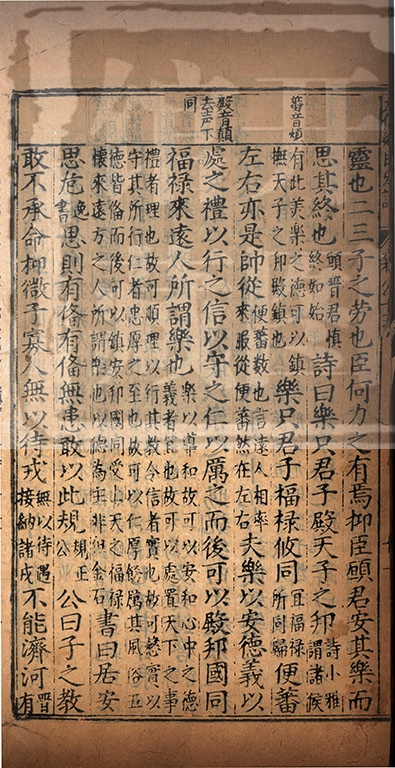 蕃音煩
殿音顛
去声下
同
靈也二三子之勞也臣何力之有焉抑臣願君安其樂而
思其終也願晉君慎終如始詩曰樂只君子殿天子之邦詩小雅謂諸侯
有此美樂之德可以鎮撫天子之邦殿鎮也樂只君子福祿攸同宜福祿所同歸便蕃
左右亦是帥從便蕃數也言遠人相率來服從便蕃然在左右夫樂以安德義以
處之禮以行之信以守之仁以厲之而後可以殿邦國同
福祿來遠人所謂樂也樂以導和故可以安和心中之德義者宜也故可以處置天下之事
禮者理也故可順理以行其教令信者實也故可慤實以守其所行仁者忠厚之至也故可以仁厚勉厲其風俗五
德皆俻而後可以鎮安邦國同受上天之福祿懷來遠方之人所謂樂也以德為主非但金石書曰居安
思危逸書思則有俻有俻無患敢以此規規正公公曰子之教
敢不承命抑微子寡人無以待戎無以待遇接納諸戎不能濟河晉有